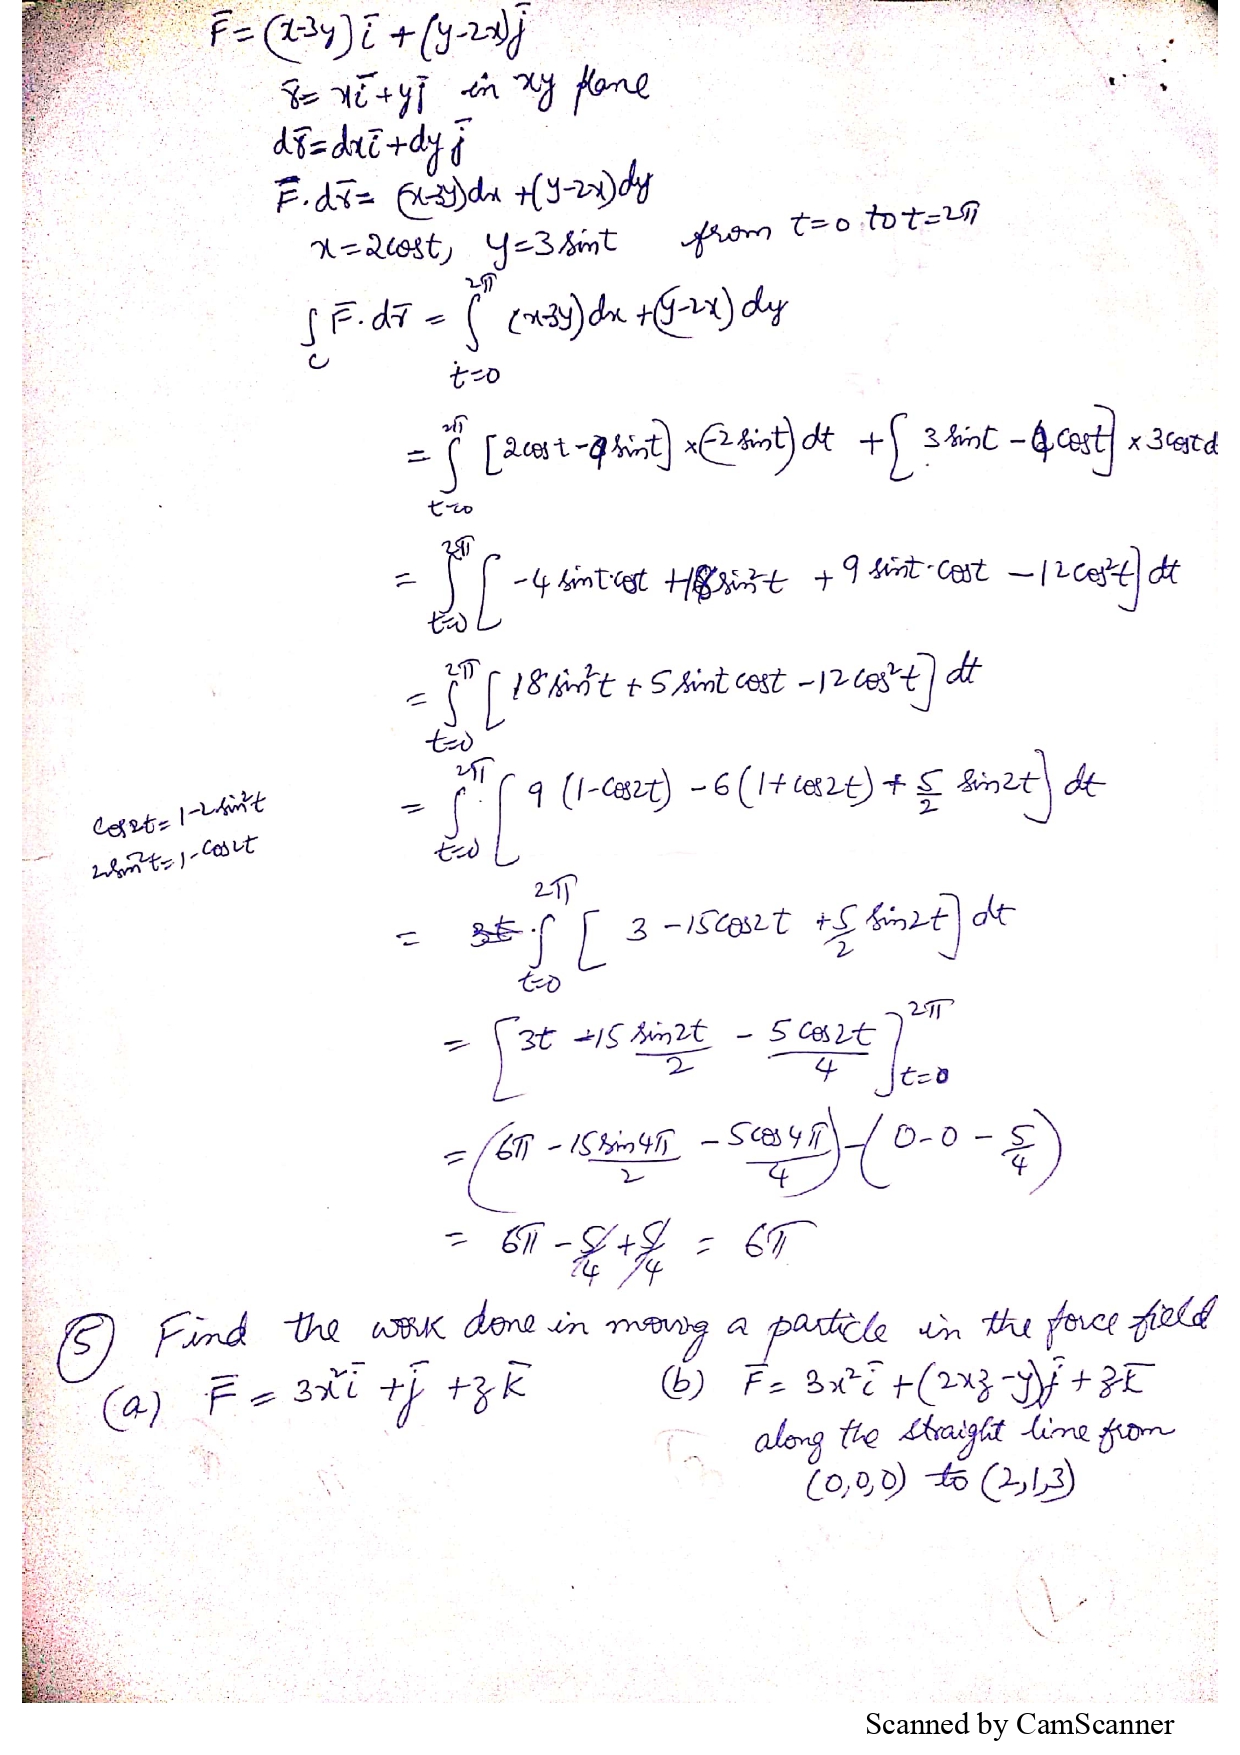 F̄ = (x-3y) ī + (y-2x) j̄
r̄ = xī + yj̄ in xy plane
dr̄ = dxī + dy j̄
F̄. dr̄ = (x-3y)dx + (y-2x)dy
x = 2cost, y = 3 sint from t=0 to t=2π
∫_C F̄. dr̄ = ∫_{t=0}^{2π} (x-3y) dx + (y-2x) dy
= ∫_{t=0}^{2π} [2cost - 9 sint] × (-2 sint) dt + [3 sint - 4 cost] × 3cost d
= ∫_{t=0}^{2π} [ -4 sint·cost + 18 sin²t + 9 sint·cost - 12 cos²t ] dt
= ∫_{t=0}^{2π} [ 18 sin²t + 5 sint cost - 12 cos²t ] dt
cos2t = 1-2sin²t
2sin²t = 1-cos2t
= ∫_{t=0}^{2π} [ 9 (1-cos2t) - 6 (1+cos2t) + 5/2 sin2t ] dt
= ∫_{t=0}^{2π} [ 3 - 15cos2t + 5/2 sin2t ] dt
= [ 3t - 15 sin2t/2 - 5 cos2t/4 ]_{t=0}^{2π}
= (6π - 15 sin4π/2 - 5cos4π/4) - (0-0 - 5/4)
= 6π - 5/4 + 5/4 = 6π
(5) Find the work done in moving a particle in the force field
(a) F̄ = 3x² ī + j̄ + z k̄ (b) F̄ = 3x² ī + (2xz-y) j̄ + z k̄
along the straight line from
(0,0,0) to (2,1,3)
Scanned by CamScanner